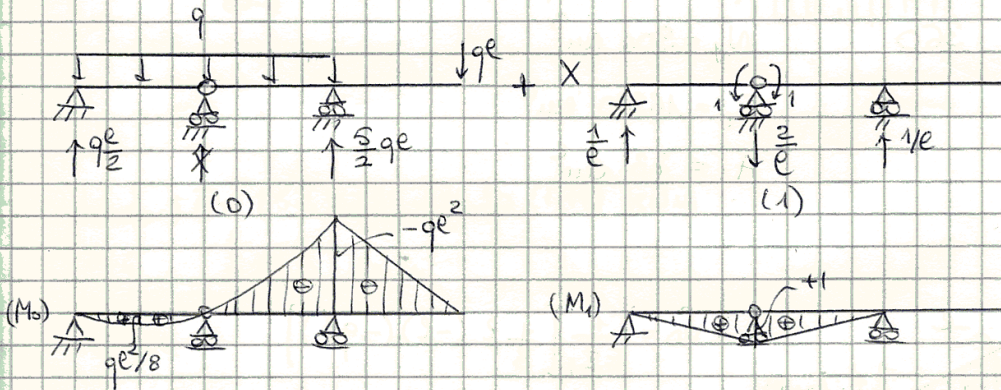 q
qℓ
+ X
1 1
qℓ/2
X
5/2 qℓ
1/ℓ
2/ℓ
1/ℓ
(0)
(1)
-qℓ²
(M₀)
⊖ ⊖
⊕ ⊕
qℓ²/8
(M₁)
+1
⊕ ⊕